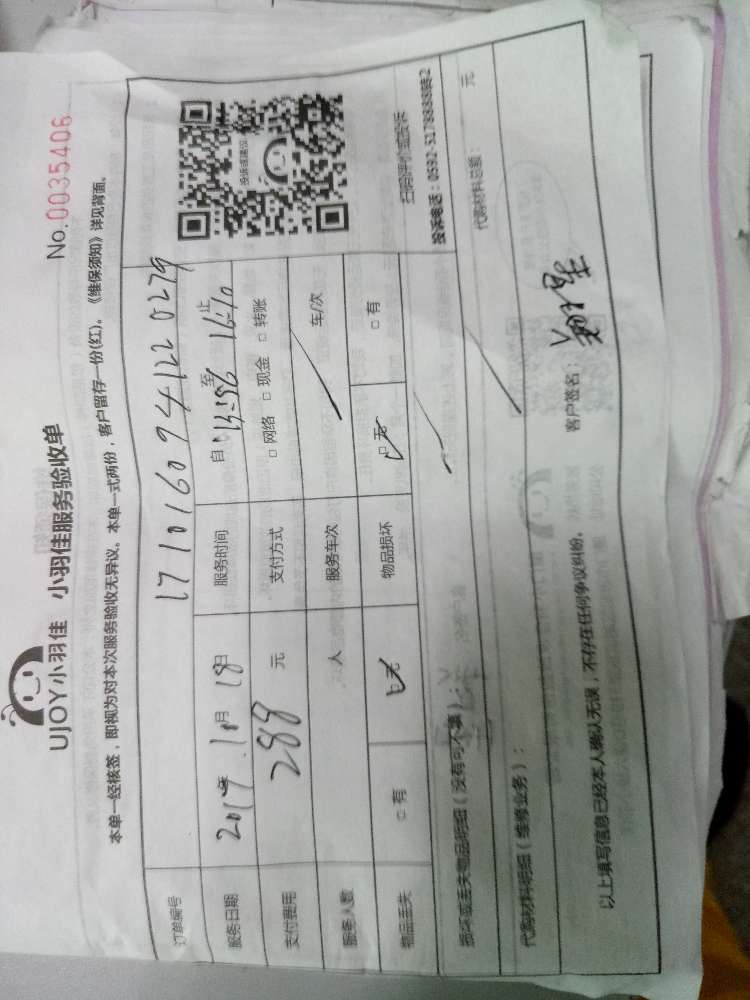 UJOY小羽佳 小羽佳服务验收单
No.0035406
本单一经核签，即视为对本次服务验收无异议。本单一式两份，客户留存一份(红)。《维保须知》详见背面。
订单编号 1710160941220279
服务日期 2017年10月18日 服务时间 自13:56至16:10止
支付费用 288元 支付方式 □网络 □现金 □转账
服务人数 人 服务车次 车/次
物品丢失 □有 ☑无 物品损坏 ☑无 □有
投诉或建议
扫码评价或投诉
投诉电话：0592-5178888转2
损坏或丢失物品明细（没有可不填）：
代购材料明细（维修业务）： 代购材料总额： 元
以上填写信息已经本人确认无误，不存在任何争议纠纷。 客户签名：